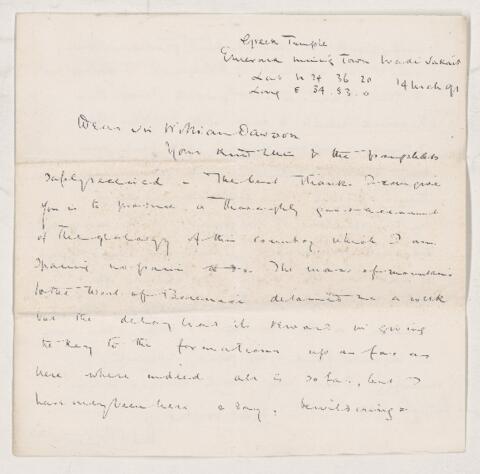 Greek Temple
Emerald mining Town Wadi Sakait
Lat N 24 36 20
Long E 34.53.0
14 March 91
Dear Sir William Dawson
Your kind letter & the pamphlets
safely received - The best thanks I can give
you is to promise a thoroughly good account
of the geology of this country which I am
sparing no pains to do. The mass of mountains
to the West of Berenice detained me a week
but the delay had its reward in giving
the key to the formations up as far as
here where indeed all is so far, but I
have only been here a day, bewildering